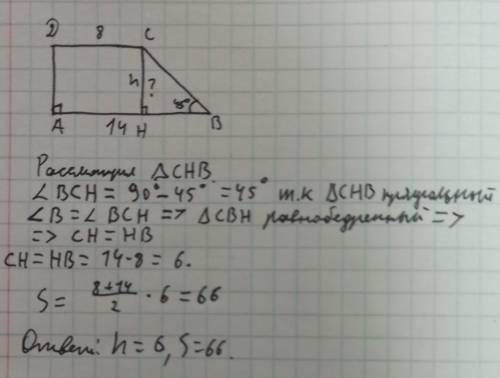 D 8 C
h ?
45°
A 14 H B
Рассмотрим ΔCHB.
∠BCH = 90° - 45° = 45° т.к ΔCHB прямоугольный
∠B = ∠BCH => ΔCBH равнобедренный =>
=> CH = HB
CH = HB = 14 - 8 = 6.
S = (8+14)/2 · 6 = 66
Ответ: h = 6, S = 66.